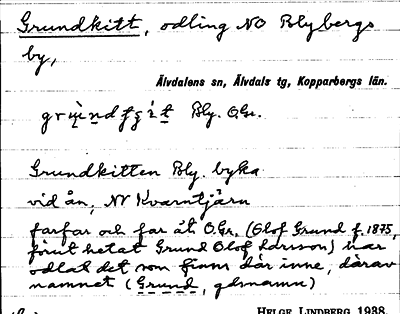 Grundkitt, odling NO Blybergs
by,
Älvdalens sn, Älvdals tg, Kopparbergs län.
Bly. O.Gr.
Grundkitten Bly. byka
vid ån, NV Kvarntjärn
farfar och far åt O.Gr. (Olof Grund f. 1875,
förut hetat Grund Olof Larsson) har
odlat det som finns där inne, därav
namnet (Grund, gdsnamn)
HELGE LINDBERG 1938.